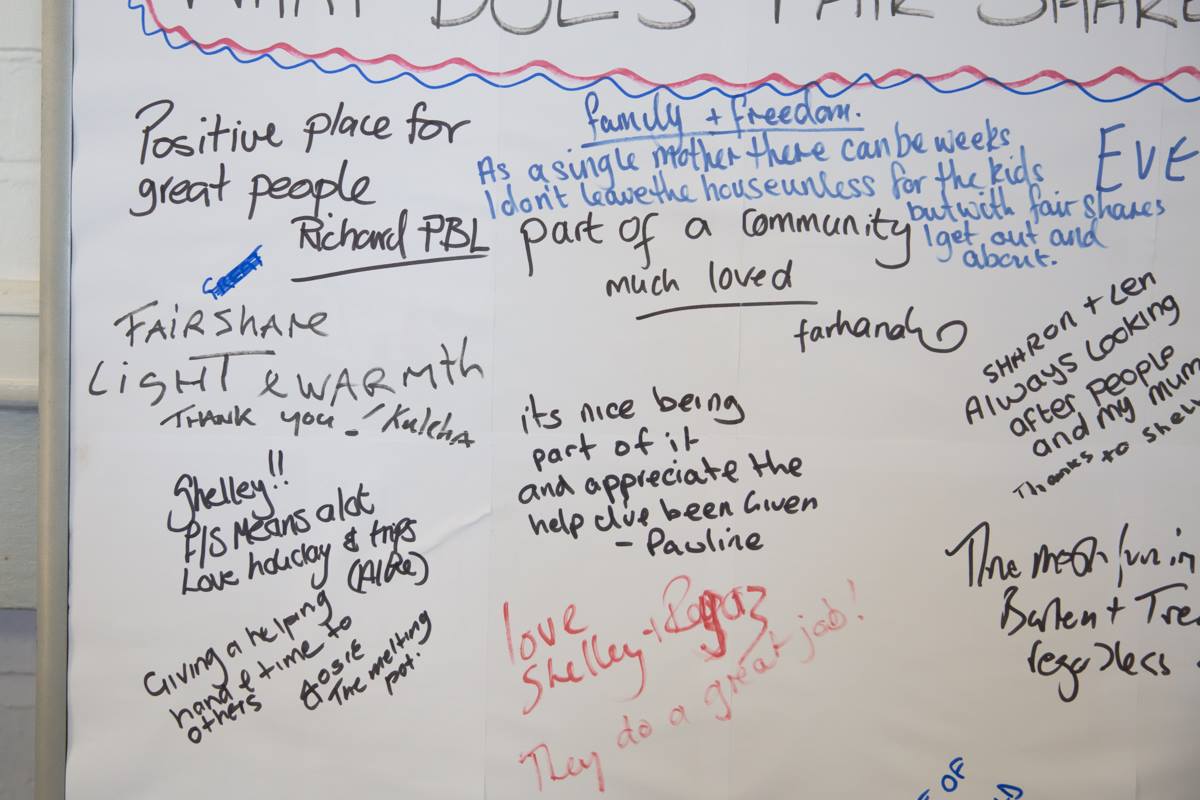 WHAT DOES FAIR SHARE
Positive place for
great people
Richard PBL
family + freedom.
As a single mother there can be weeks
I don't leave the house unless for the kids
but with fair shares
I get out and
about.
EVE
part of a community
much loved
farhanah
FAIRSHARE
LIGHT & WARMTH
THANK you - Kulcha
SHARON + Len
Always Looking
after people
and my mum
Thanks to Shell
its nice being
part of it
and appreciate the
help ive been Given
- Pauline
Shelley!!
F/S Means a lot
Love holiday & trips
Giving a helping
hand & time to
others
Rosie
The melting
pot.
love
Shelley +
They do a great job!
The most fun in
Barton + Tre
regardless
OF